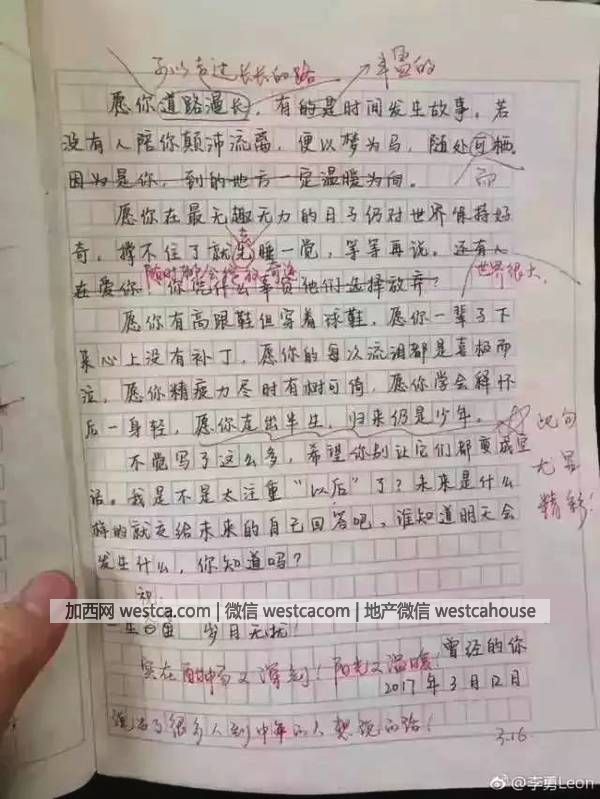 可以走过长长的路 丰盈的
愿你道路漫长，有的是时间发生故事。若
没有人陪你颠沛流离，便以梦为马，随处可栖。
因为是你，到的地方一定温暖为向。
而
愿你在最无趣无力的日子仍对世界保持好
奇，撑不住了就先睡一觉，等等再说。还有人
随时都会 世界很大
在爱你，你凭什么辜负他们选择放弃？
愿你有高跟鞋但穿着球鞋，愿你一辈子下
来心上没有补丁，愿你的每次流泪都是喜极而
泣，愿你精疲力尽时有树可倚，愿你学会释怀
后一身轻，愿你走出半生，归来仍是少年。
此句
尤显
精彩！
不觉写了这么多，希望你别让它们都变成空
话。我是不是太注重“以后”了？未来是什么
样的就交给未来的自己回答吧，谁知道明天会
发生什么，你知道吗？
祝：
加西网 westca.com | 微信 westcacom | 地产微信 westcahouse
一生 岁月无扰！
实在 又深刻！阳光又温暖！
曾经的你
2017年3月12日
说出了很多人到中年的人想说的话！
3.16
@李勇Leon